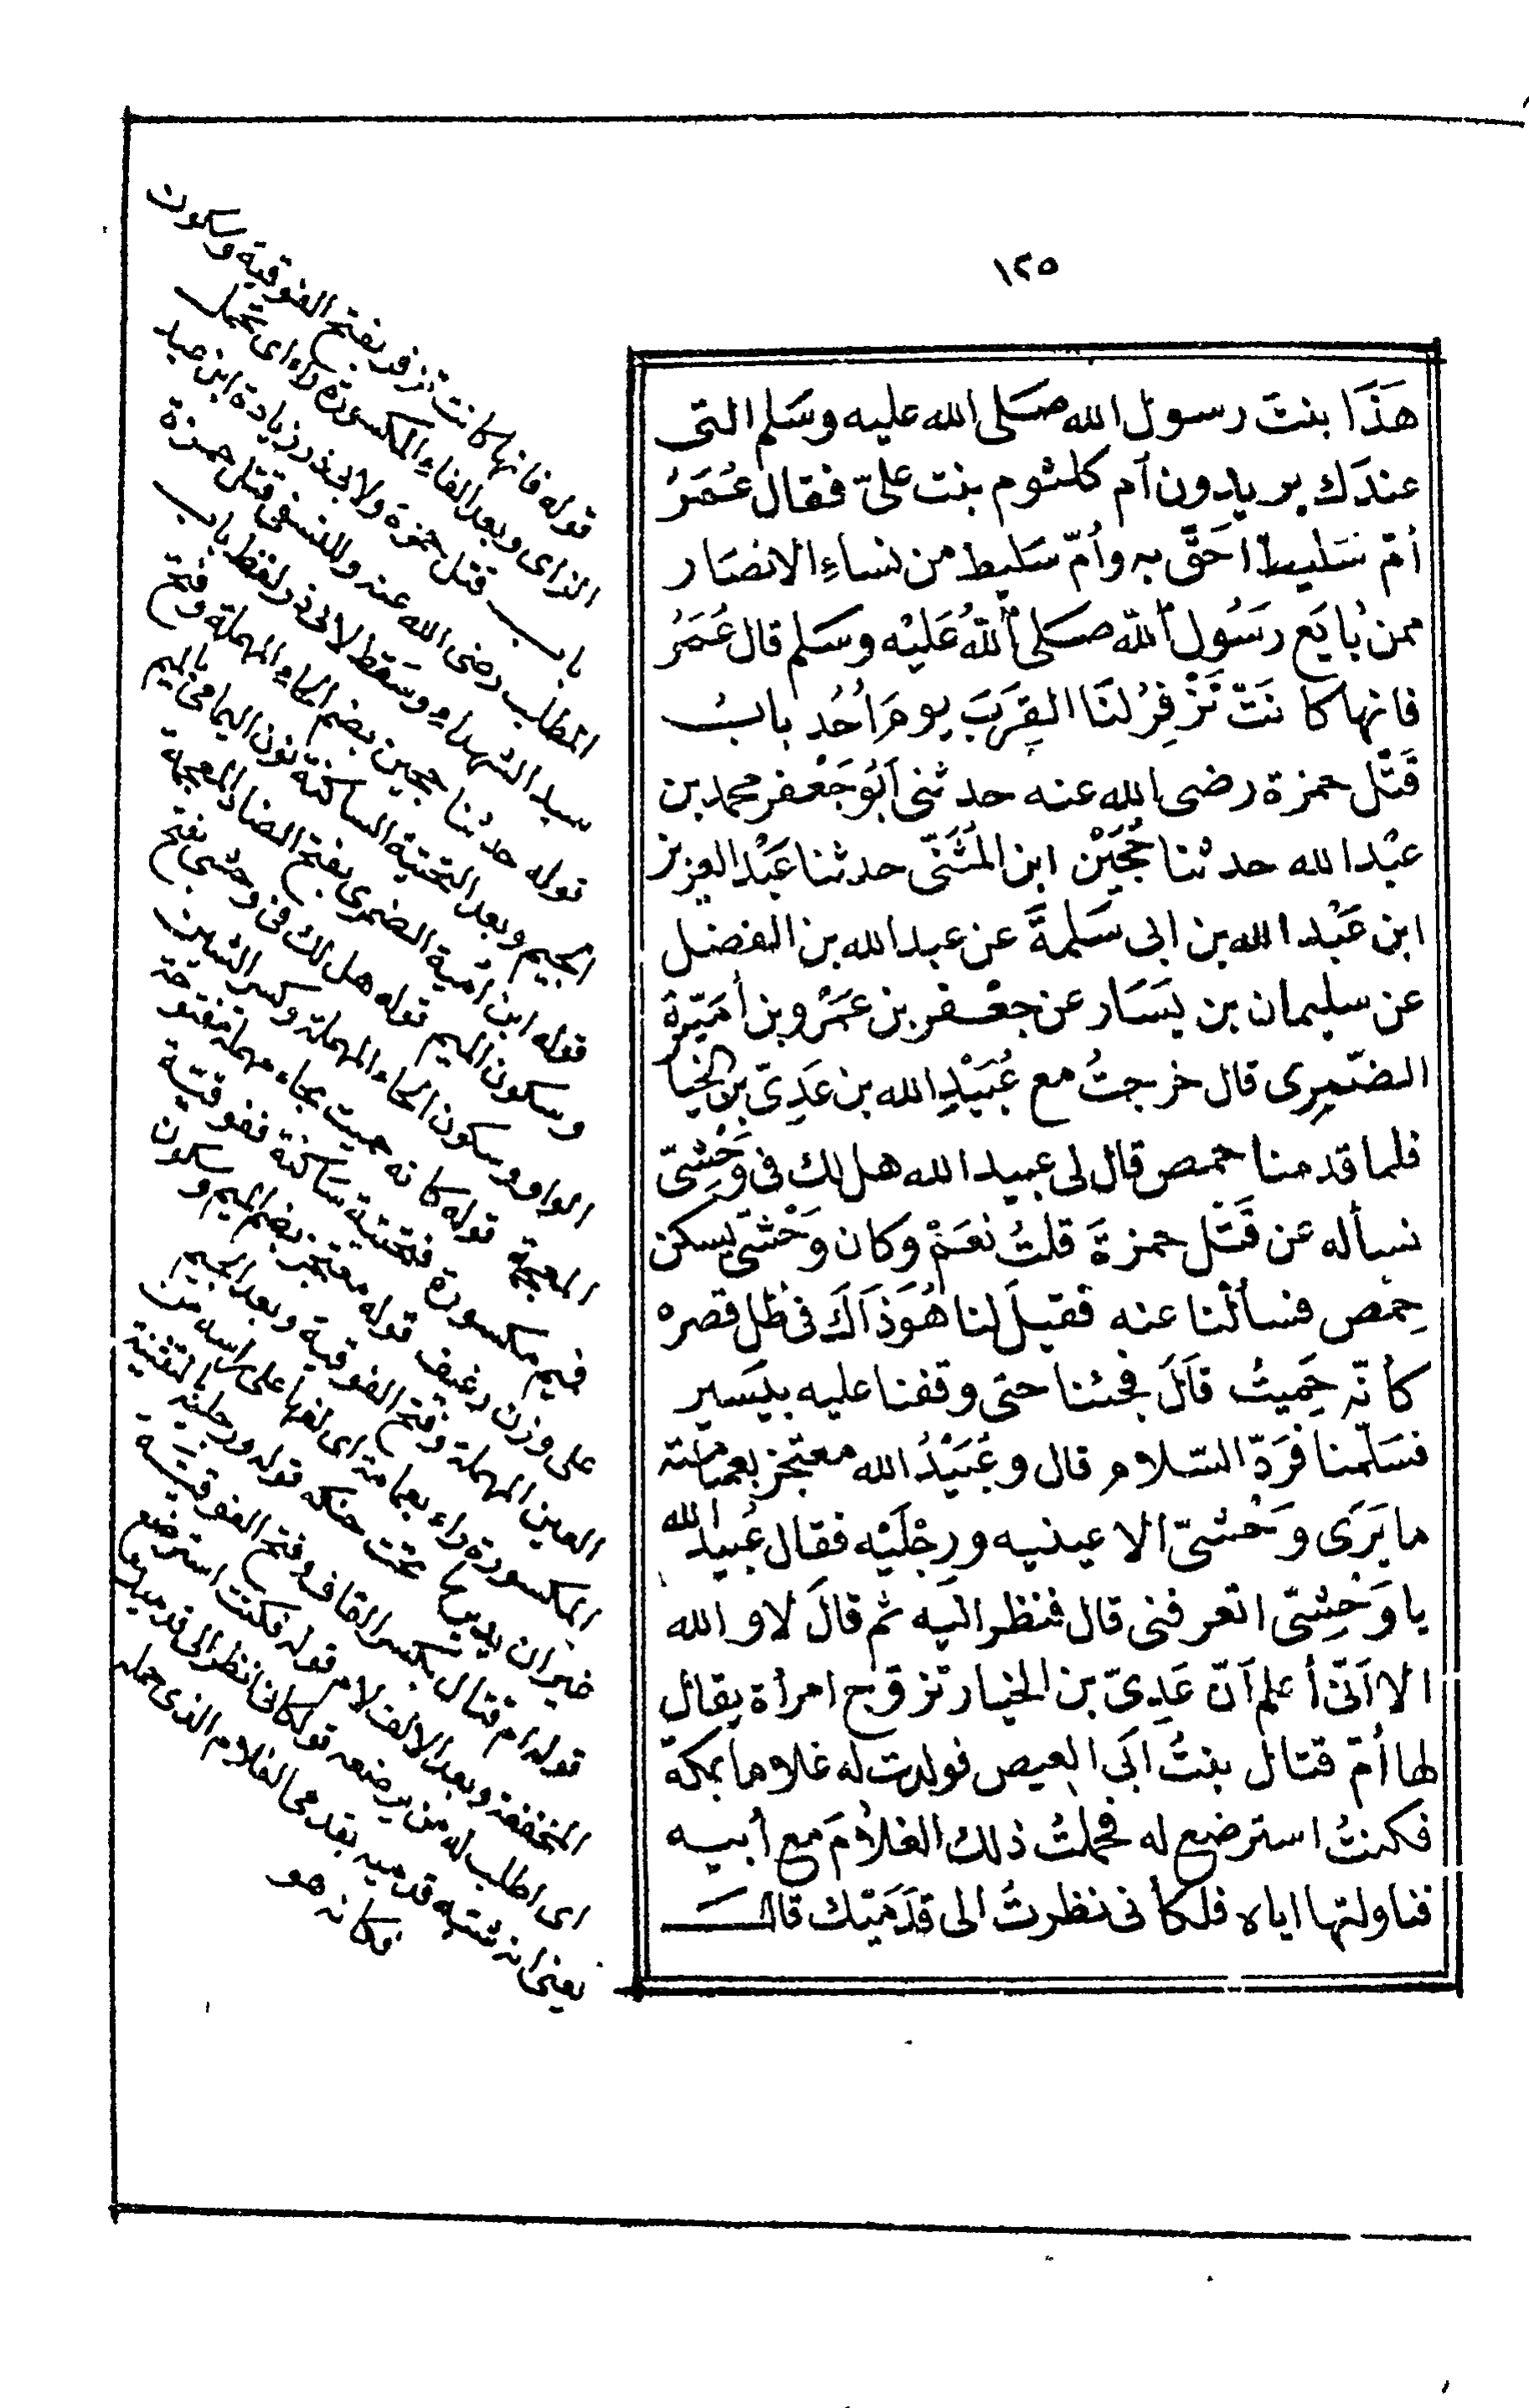 ١٢٥
هَذَا بنتَ رسول الله صَلى الله عليه وسَلم التى
عندَك يريدون اُم كلثوم بنت علىّ فقال عُمَرُ
اُمّ سَليط اَحَقّ به واُمّ سَليط من نساءِ الانصَار
ممن بُايَع رسَُول اللّه صَلى اللّهُ عَليْه وسَلم قال عُمَرُ
فانها كانَتْ تَزْفِرُ لنَا القِرَبَ يومَ اُحُد بابُ
قَتْل حمزة رضى الله عنه حدثنى اَبُو جَعْفر محمد بن
عبْد الله حدثنا حُجَيْن ابن المثَنّى حدثنا عَبْد العزيز
ابن عَبْد الله بن ابى سَلمةَ عن عبد الله بن الفضل
عن سليمان بن يَسَار عن جعْفر بن عَمْرو بن أمَيّةَ
الضّمرِى قال خرجتُ مع عُبَيْدِ الله بن عَدِىّ بن الخيار
فلما قدمنا حمص قال لى عبيد الله هل لك فى وَحْشِىّ
نسأله عن قَتْل حمزةَ قلتُ نعَمْ وكان وَحْشىّ يسكن
حِمص فسألنا عنه فقيلَ لنا هُوَ ذَاكَ فى ظل قصره
كأنّه حَمِيتُ قَالَ فجئنا حتى وقفنا عليه بيَسير
فسَلّمنا فَردّ السّلام قال وعُبَيْدُ الله معتجر بعمامته
ما يَرَى وَحْشىّ الا عينيه ورِجْلَيْه فقال عُبيد الله
يا وَحْشِىّ اتعرفنى قال فنظر اليه ثم قالَ لا والله
الا اَنّى أعلم اَنّ عَدِىّ بن الخيار تزوّج امرأة يقال
لها أُمّ قتال بنتُ ابى العيص فولدت له غلاما بمكة
فكنتُ استرضع له فحملتُ ذلك الغلاُمَ مع أبيه
فناولتها اياه فلكأنى نظرتُ الى قدَمَيْك قال
قوله فانها كانت تزفر بفتح الفوقية وسكون
الزاى وبعد الفاء المكسورة راء اى تحمل
باب قتل حمزة ولابى ذر زيادة ابن عبد
المطلب رضى الله عنه وللنسفى قتل حمزة
سيد الشهداء وسقط لابى ذر لفظ باب
قوله حدثنا حجين بضم الحاء المهملة وفتح
الجيم وبعد التحتية الساكنة نون اليمامى بالميم
قوله ابن امية الضمرى بفتح الضاد المعجمة
وسكون الميم قوله هل لك فى وحشى بفتح
الواو وسكون الحاء المهملة وكسر الشين
المعجمة قوله كانه حميت بحاء مهملة مفتوحة
فميم مكسورة فتحتية ساكنة ففوقية
على وزن رغيف قوله معتجر بضم الميم وسكون
العين المهملة وفتح الفوقية وبعد الجيم
المكسورة راء بعمامته اى لفها على راسه من
غير ان يديرها تحت حنكه قوله ورجليه بالتثنية
قوله ام قتال بكسر القاف وفتح الفوقية
المخففة وبعد الالف لام قوله فكنت استرضع
اى اطلب له من يرضعه قوله فكانى انظر الى قدميك
يعنى انه شبه قدميه بقدمى الغلام الذى حمله
فكانه هو